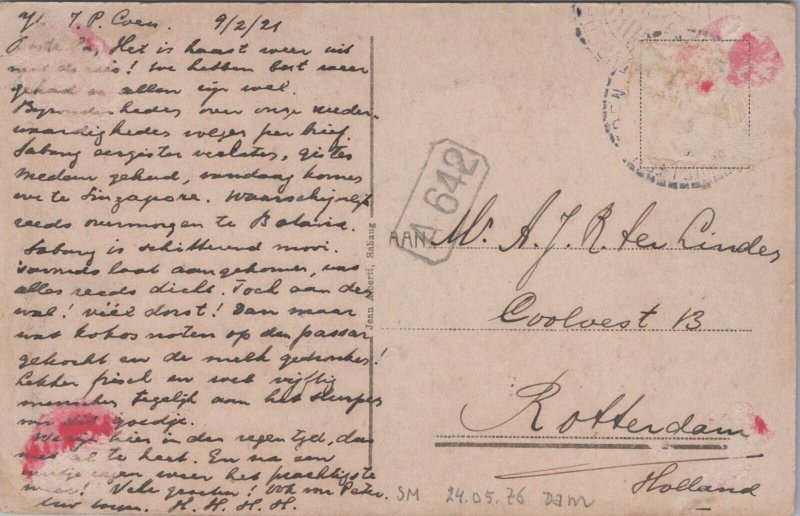 J. P. Coen. 9/2/21
Pa, Het is haast weer uit
met de reis! We hebben best weer
gehad en allen zijn wel.
Bijzonderhedes over onze weder-
waardighedes volges per brief.
Sabang eergister verlates, gistes
Medan gehad, vandaag komes
we te Singapore. Waarschijnlijk
reeds overmorgen te Batavia.
Sabang is schitterend mooi.
's avonds laat aangekomen, was
alles reeds dicht. Toch aan des
wal! véél dorst! Dan maar
wat kokosnoten op den passar
gekocht en de melk gedronkes!
Lekker frisch en wel vijftig
mensches tegelijk aan het
dit goedje.
We zijn hier in den regentijd, dus
niet al te heet. En na een
regen weer het prachtigste
weer! Vele groeten! Ook voor Peter.
H. H. H. H.
Jean Alberti, Sabang
A 642
AAN:
Mr. A. J. R. ter Lindes
Coolvest B
Rotterdam
Holland
SM 24.05.76 Dam